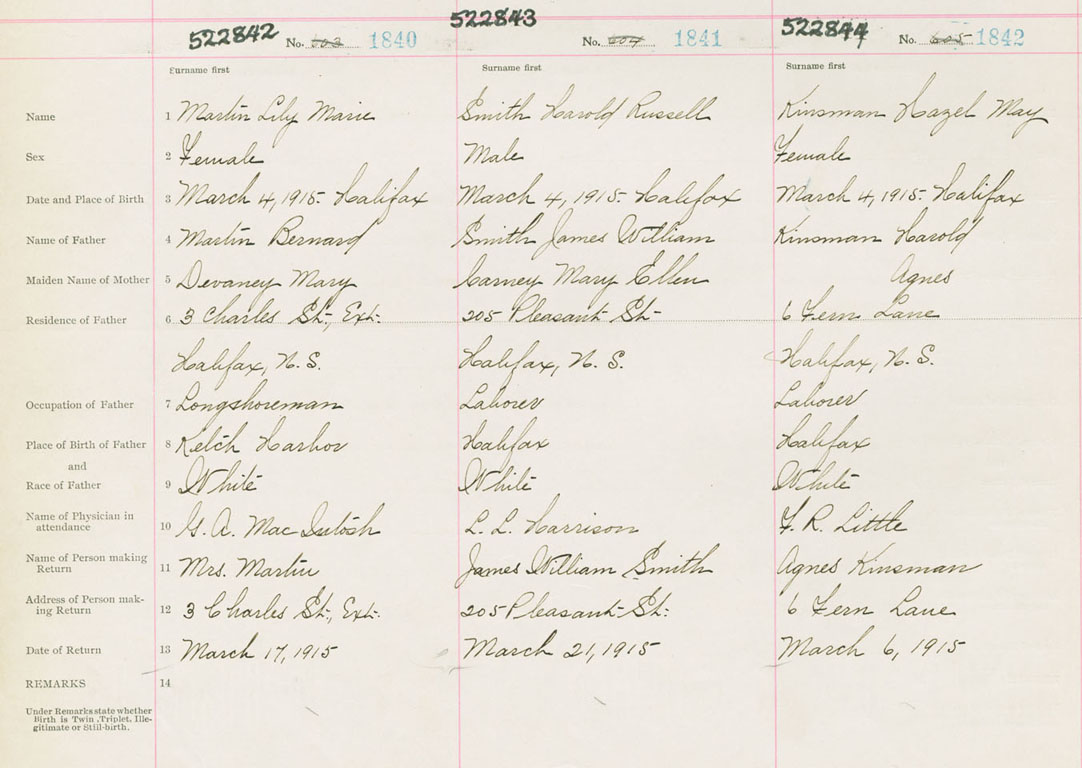 522842 No. 603 1840 522843 No. 604 1841 522844 No. 605 1842
Surname first Surname first Surname first
Name 1 Martin Lily Marie Smith Harold Russell Kinsman Hazel May
Sex 2 Female Male Female
Date and Place of Birth 3 March 4, 1915- Halifax March 4, 1915- Halifax March 4, 1915- Halifax
Name of Father 4 Martin Bernard Smith James William Kinsman Harold
Maiden Name of Mother 5 Devaney Mary Carney Mary Ellen Agnes
Residence of Father 6 3 Charles St., Ext. 205 Pleasant St. 6 Fern Lane
Halifax, N. S. Halifax, N. S. Halifax, N. S.
Occupation of Father 7 Longshoreman Laborer Laborer
Place of Birth of Father 8 Ketch Harbor Halifax Halifax
and
Race of Father 9 White White White
Name of Physician in
attendance 10 G. A. MacIntosh L. L. Harrison F. R. Little
Name of Person making
Return 11 Mrs. Martin James William Smith Agnes Kinsman
Address of Person mak-
ing Return 12 3 Charles St., Ext. 205 Pleasant St. 6 Fern Lane
Date of Return 13 March 17, 1915 March 21, 1915 March 6, 1915
REMARKS 14
Under Remarks state whether
Birth is Twin, Triplet, Ille-
gitimate or Still-birth.